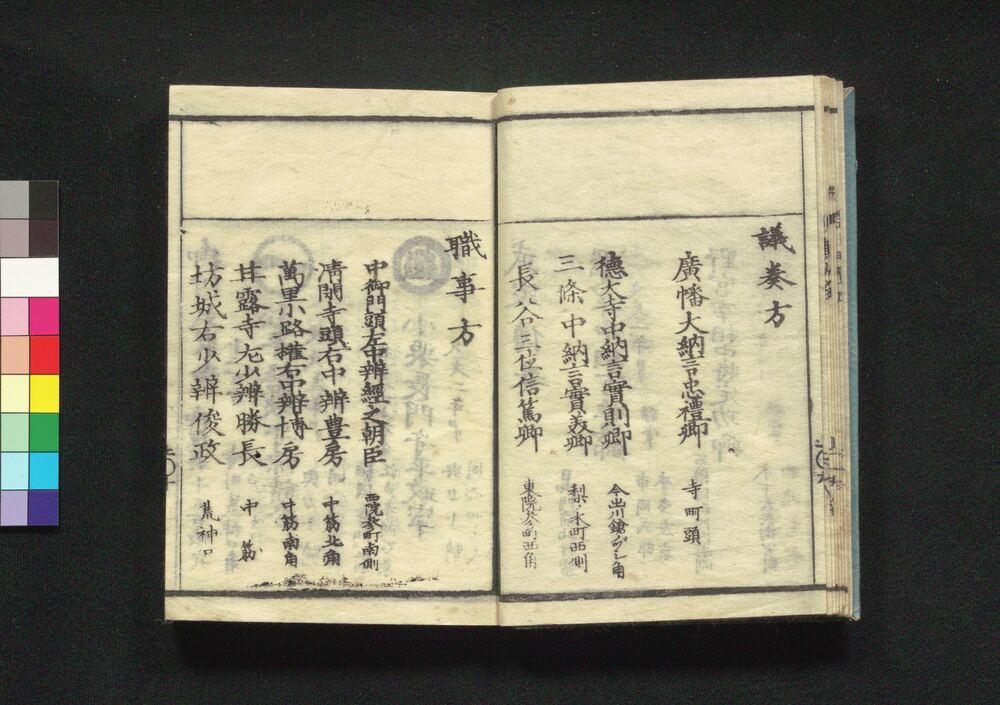 議奏方
廣幡大納言忠禮卿 寺町頭
德大寺中納言實則卿 今出川
三條中納言實美卿 梨ノ木町西側
長谷三位信篤卿 東院参町西角
職事方
中御門頭左中辨經之朝臣 西院参町南側
清閑寺頭右中辨豊房 中筋北角
萬里小路權右中辨博房 中筋南角
甘露寺左少辨勝長 中筋
坊城右少辨俊政 荒神口